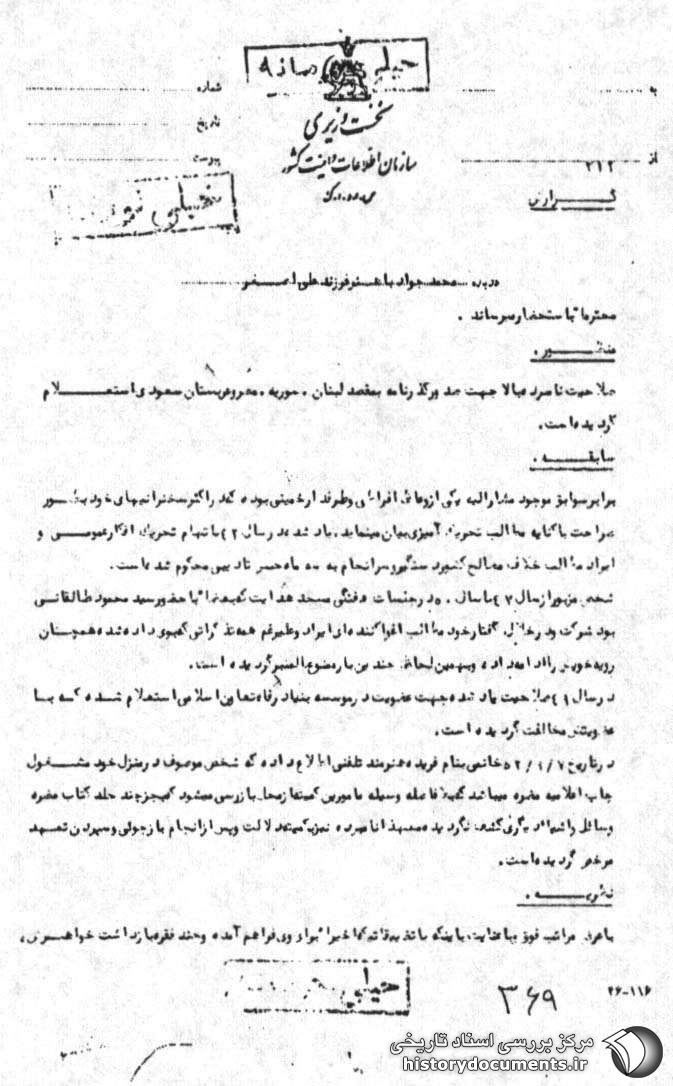 خیلی محرمانه
به
شماره
نخست وزیری
تاریخ
سازمان اطلاعات و امنیت کشور
پیوست
از ۳۱۲
س.ا.و.ا.ک
گزارش
خیلی
درباره محمد جواد باهنر فرزند علی اصغر
محترما باستحضار میرساند .
منظور .
صلاحیت نامبرده بالا جهت صدور گذرنامه بمقصد لبنان . سوریه . مصر و عربستان سعودی استعلام
گردیده است .
سابقه .
برابر سوابق موجود مشارالیه یکی از وعاظ افراطی و طرفدار خمینی بوده که در اکثر سخنرانیهای خود بطور
صراحت با کنایه مطالب تحریک آمیزی بیان مینماید . یاد شده در سال ۴۲ باتهام تحریک افکار عمومی و
ایراد مطالب خلاف مصالح کشور دستگیر و سرانجام به سه ماه حبس تادیبی محکوم شده است .
شخص مزبور از سال ۴۷ تا سال ۵۰ در جلسات هفتگی مسجد هدایت که بعضا با حضور سید محمود طالقانی
بود شرکت و در خلال گفتار خود مطالب اغوا کننده ای ایراد و علیرغم همه تذکراتی که بوی داده شده همچنان
رویه خویش را ادامه داده و بهمین لحاظ چندین بار ممنوع المنبر گردیده است .
در سال ۴۱ صلاحیت یاد شده جهت عضویت در موسسه بنیاد رفاه تعاون اسلامی استعلام شده که با
عضویتش مخالفت گردیده است .
در تاریخ ۵۲/۱/۷ خانمی بنام فریده هنرمند تلفنی اطلاع داده که شخص موصوف در منزل خود مشغول
چاپ اعلامیه مضره میباشد که بلافاصله وسیله مامورین کمیته از محل بازرسی میشود که بجز چند جلد کتاب مضره
وسائل و اشیاء دیگری کشف نگردیده معهذا نامبرده نیز بکمیته دلالت و پس از انجام بازجوئی و سپردن تعهد
مرخص گردیده است .
نظریه .
با عرض مراتب فوق و با عنایت باینکه با تضییقاتیکه اخیرا برای وی فراهم آمده و چند فقره بازداشت خواهرش ،
خیلی
۳۶۹
۲۶-۱۱۶
مرکز بررسی اسناد تاریخی
historydocuments.ir